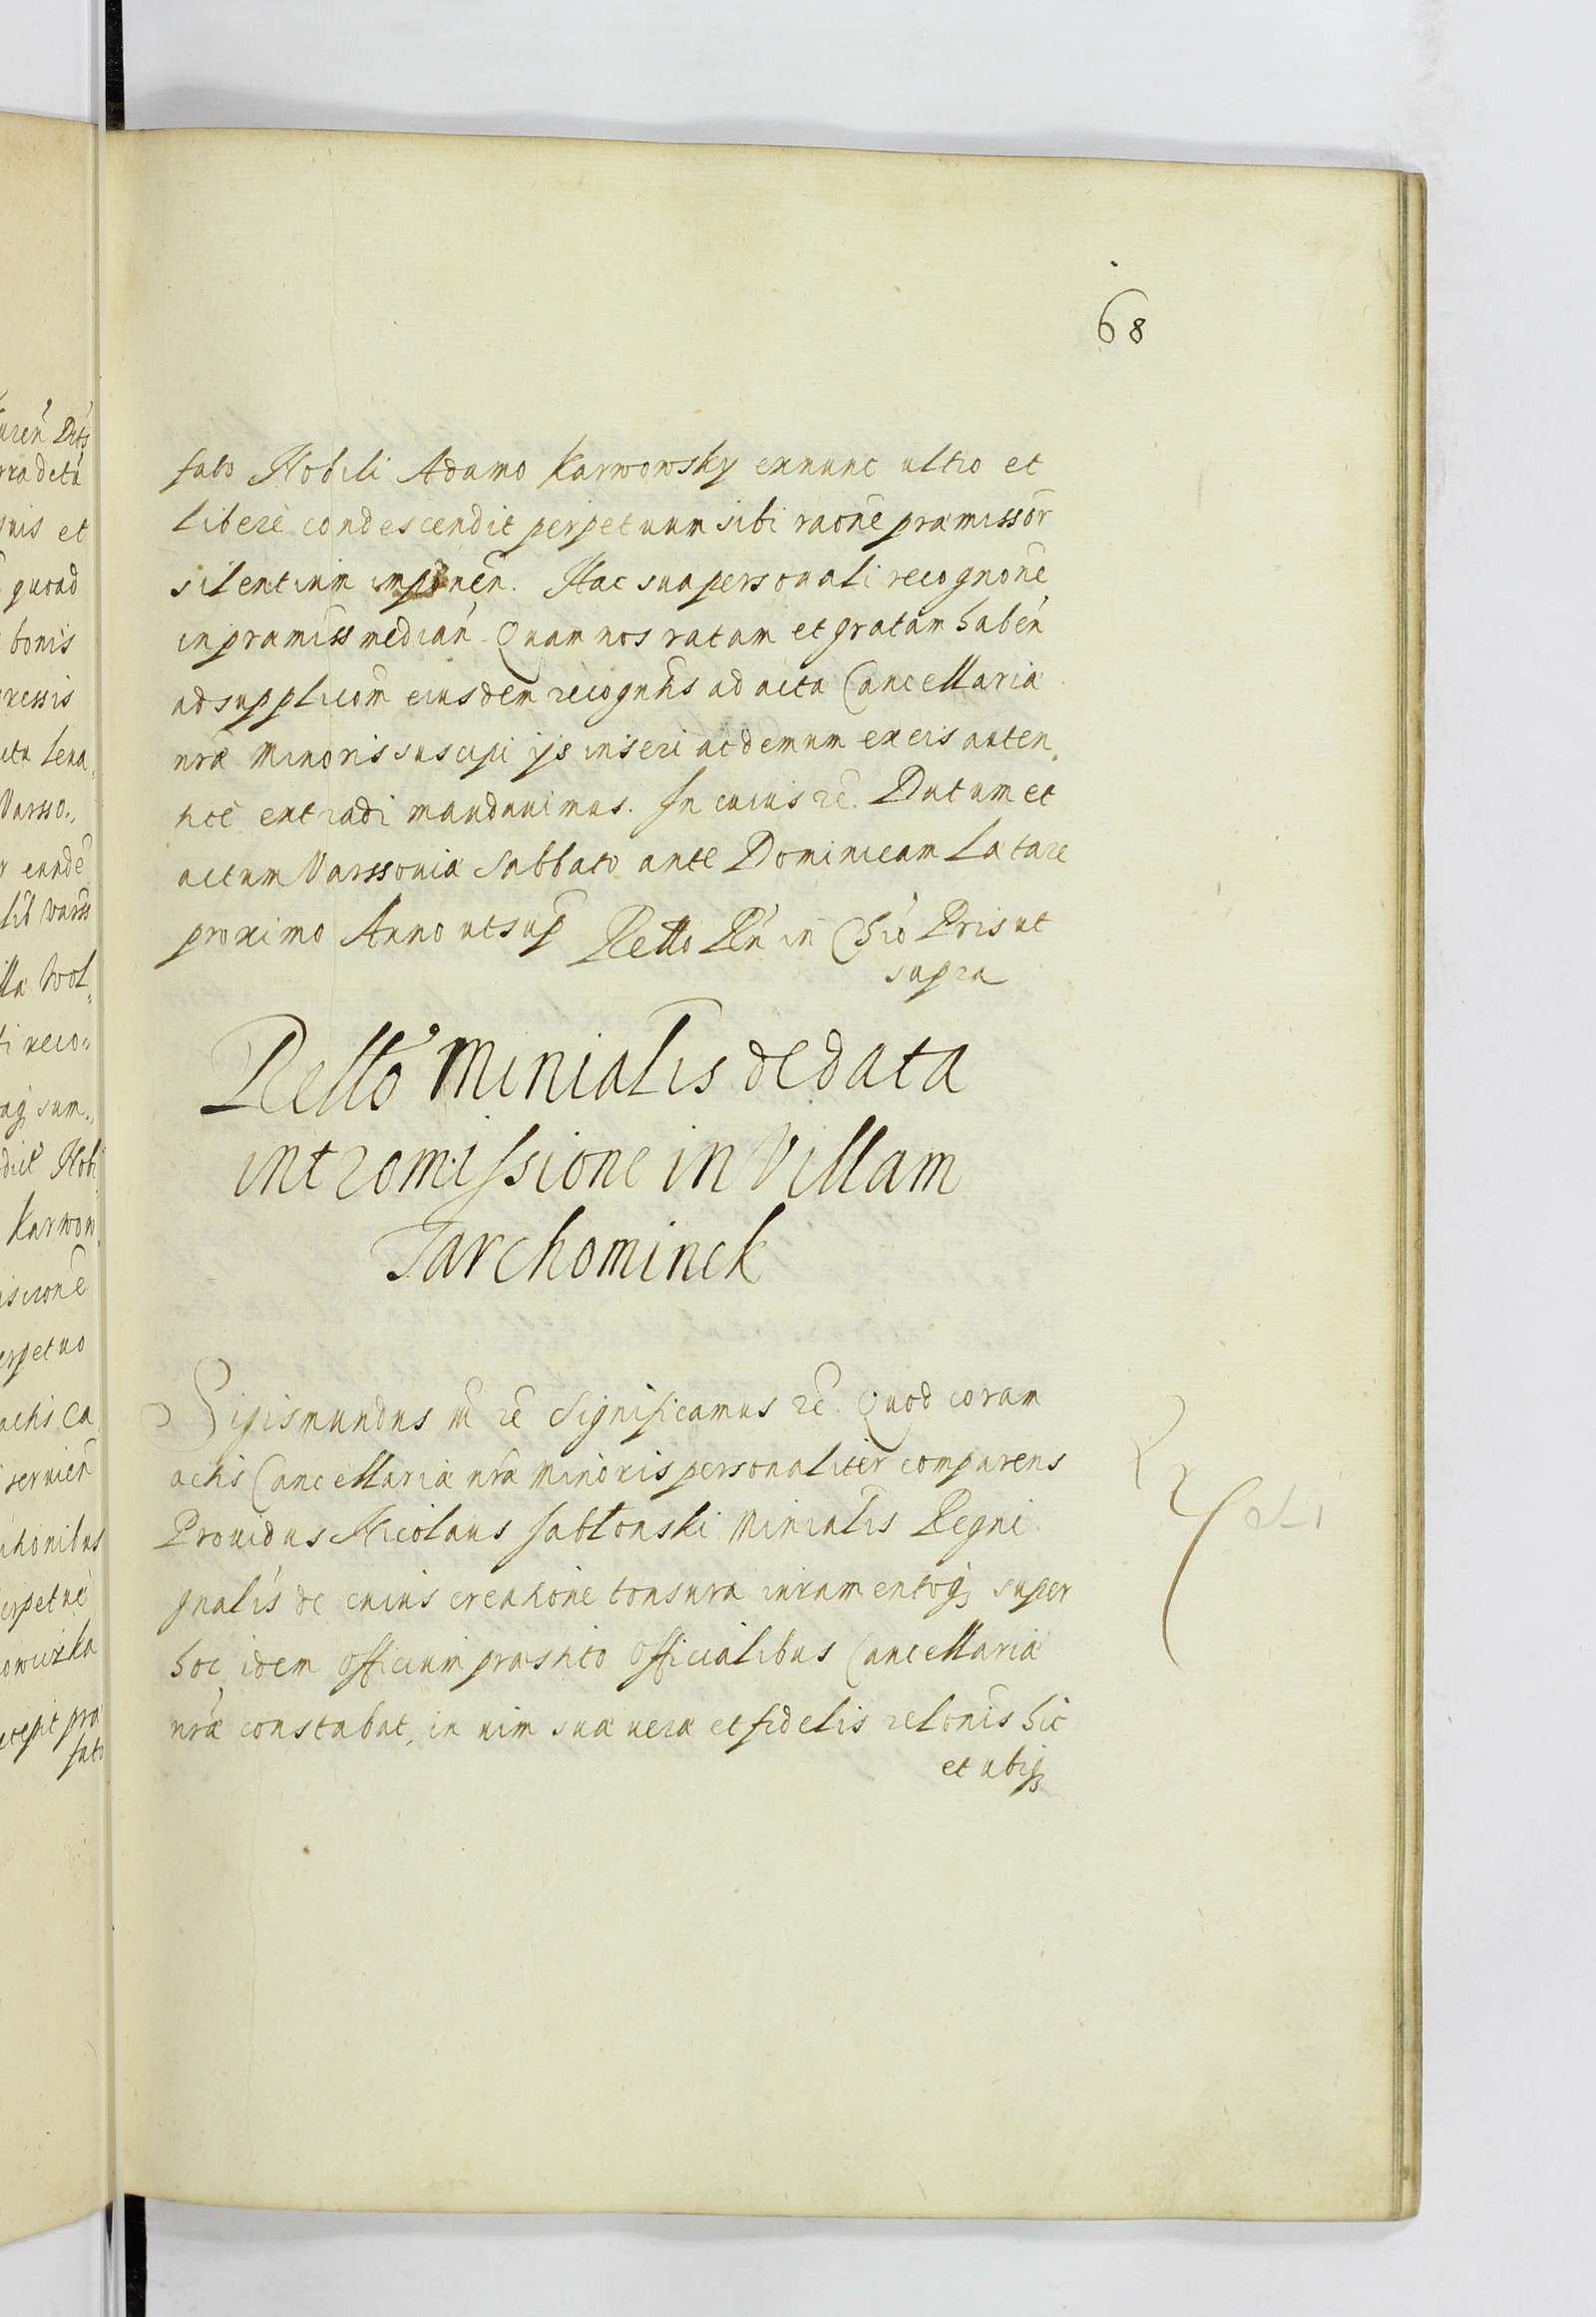 68
fato Nobili Adamo Karwowsky exnunc ultro et
liberè condescendit perpetuum sibi raone præmissor
silentium imponen. Hac sua personali recognone
in præmiss median. Quam nos ratam et gratam haben
ad supplicom eiusdem recognntis ad acta Cancellariæ
nræ Minoris suscipi ijs inseri ac demum ex eis auten,,
tice extradi mandauimus. In cuius rē. Datum et
actum Varssouiæ Sabbato ante Dominicam Lætare
proximo Anno ut sup Retto Rn in Chio Pris ut
supra
Retto Minialis de data
intromissione in Villam
Tarchominek
Sigismundus III rē Significamus rē. Quod coram
actis Cancellariæ nræ Minoris personaliter comparens
Prouidus Nicolaus Jabłonski Minialis Regni
gnalis de cuius creatione tonsura iuramentoq super
hoc idem officium præstito officialibus Cancellariæ
nræ constabat, in uim suæ ueræ et fidelis relonis hic
et ubiq
uren
quoad
bonis
Varsso,,
Wol,,
reco,,
sum,,
Nobi
Karwow,,
perpetuo
actis Ca
seruien
perpetue
pra
fato